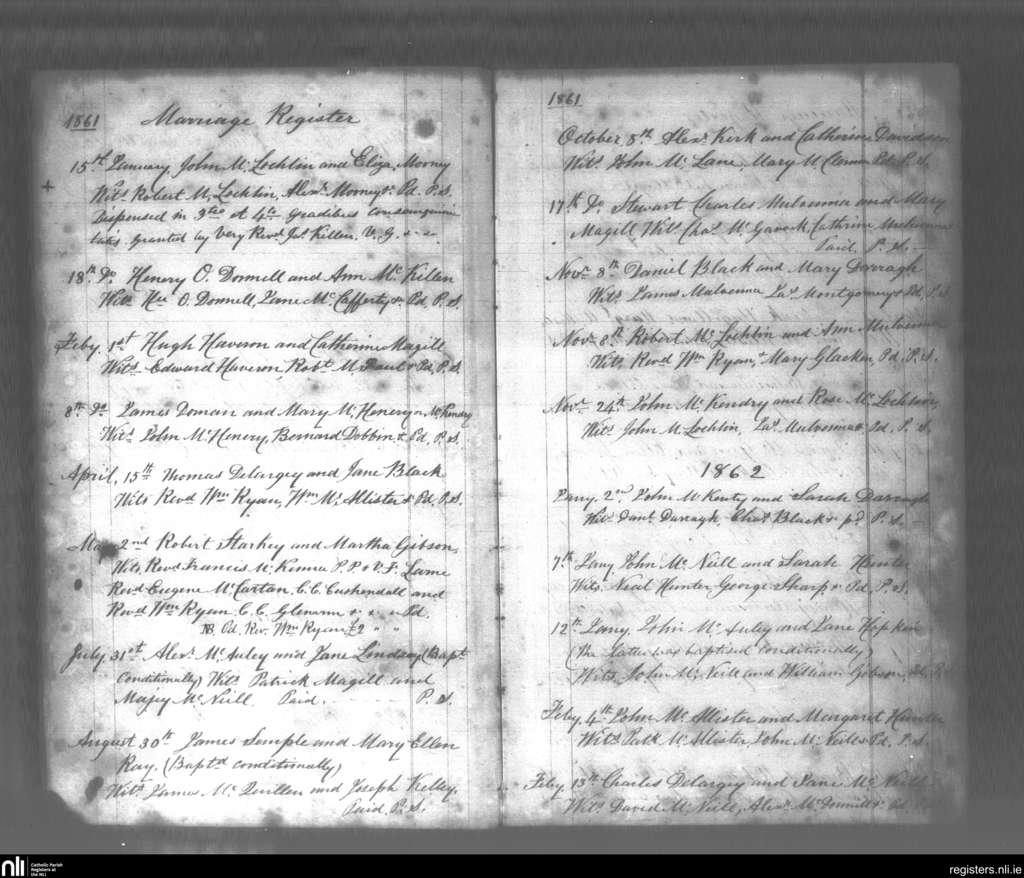 1861 Marriage Register
15th January, John Mc Lochlin and Eliza Mooney
Wits Robert Mc Lochlin, Alexr Mooney &. Pd. P.S.
Dispensed in 3tio et 4to gradibus consanguini
tatis. granted by Very Revd Jas Killen. V.G. &-&-
18th Do Henery O. Donnell and Ann Mc Killen
Wits O. Donnell, Jane Mc Cafferty &. Pd, P.S
Feby. 1st Hugh Haveron and Catherine Magill
Wits Edward Haveron, Robt Mc Paul & Pd, P.S.
8th Do James Doman and Mary Mc Henery or McKendry
Wits John Mc Henery, Bernard Dobbin &. Pd, P.S.
April, 15th Thomas Delargey and Jane Black
Wits Revd Wm Ryan, Wm Mc Allister & Pd, P.S.
May 2nd Robert Starkey and Martha Gibson,
Wits Revd Francis Mc Kenna P.P & V.F. Larne
Revd Eugene Mc Cartan. C.C. Cushendall and
Revd Wm Ryan. C.C. Glenarm & & Pd.
NB Pd. Rev. Wm Ryan £2 " "
July 31st Alexr Mc Auley and Jane Lindsay (Bapt
conditionally) Wits Patrick Magill and
Majey Mc Neill. Paid. P.S.
August 30th James Semple and Mary Ellen
Ray. (Baptd conditionally)
Wits James Mc Quillen and Joseph Kelley.
Paid. P.S.
1861
October 8th Alexr Kirk and Catherine Davidson
Wits John Mc Lane, Mary Mc Pd. P.S.
17th Do Stewart Charles Mulvenna and Mary
Magill Wits Chas Mc Gavock, Cathrine Mulvenna
Paid P.S.
Novr 8th Daniel Black and Mary Darragh
Wits James Mulvenna Jas Montgomery & Pd, P.S
Novr 8th Robert Mc Lochlin and Ann Mulvenna
Wits, Revd Wm Ryan, & Mary Glacken, Pd. P.S.
Novr 24th John Mc Kendry and Rose Mc Lochlin,
Wits John Mc Lochlin, Jas Mulvenna & Pd, P.S
1862
Jany. 2nd John Mc Kenty and Sarah Darragh
Wits Danl Darragh, Chas Black & pd P.S.
7th Jany John Mc Neill and Sarah Hunter
Wits. Neal Hunter George Sharp & Pd, P.S.
12th Jany. John Mc Auley and Jane Hopkin
(The latter was baptised conditionally)
Wits, John Mc Neill and William Gibson, Pd, P.S
Feby. 4th John Mc Allister and Margaret Hunter
Wits Patk Mc Allister, John Mc Neill & Pd. P.S.
Feby. 13th Charles Delargey and Jane Mc Neill
Wits David Mc Neill, Alexr Mc Donnell & Pd.
nli
Catholic Parish
Registers at
the NLI
registers.nli.ie